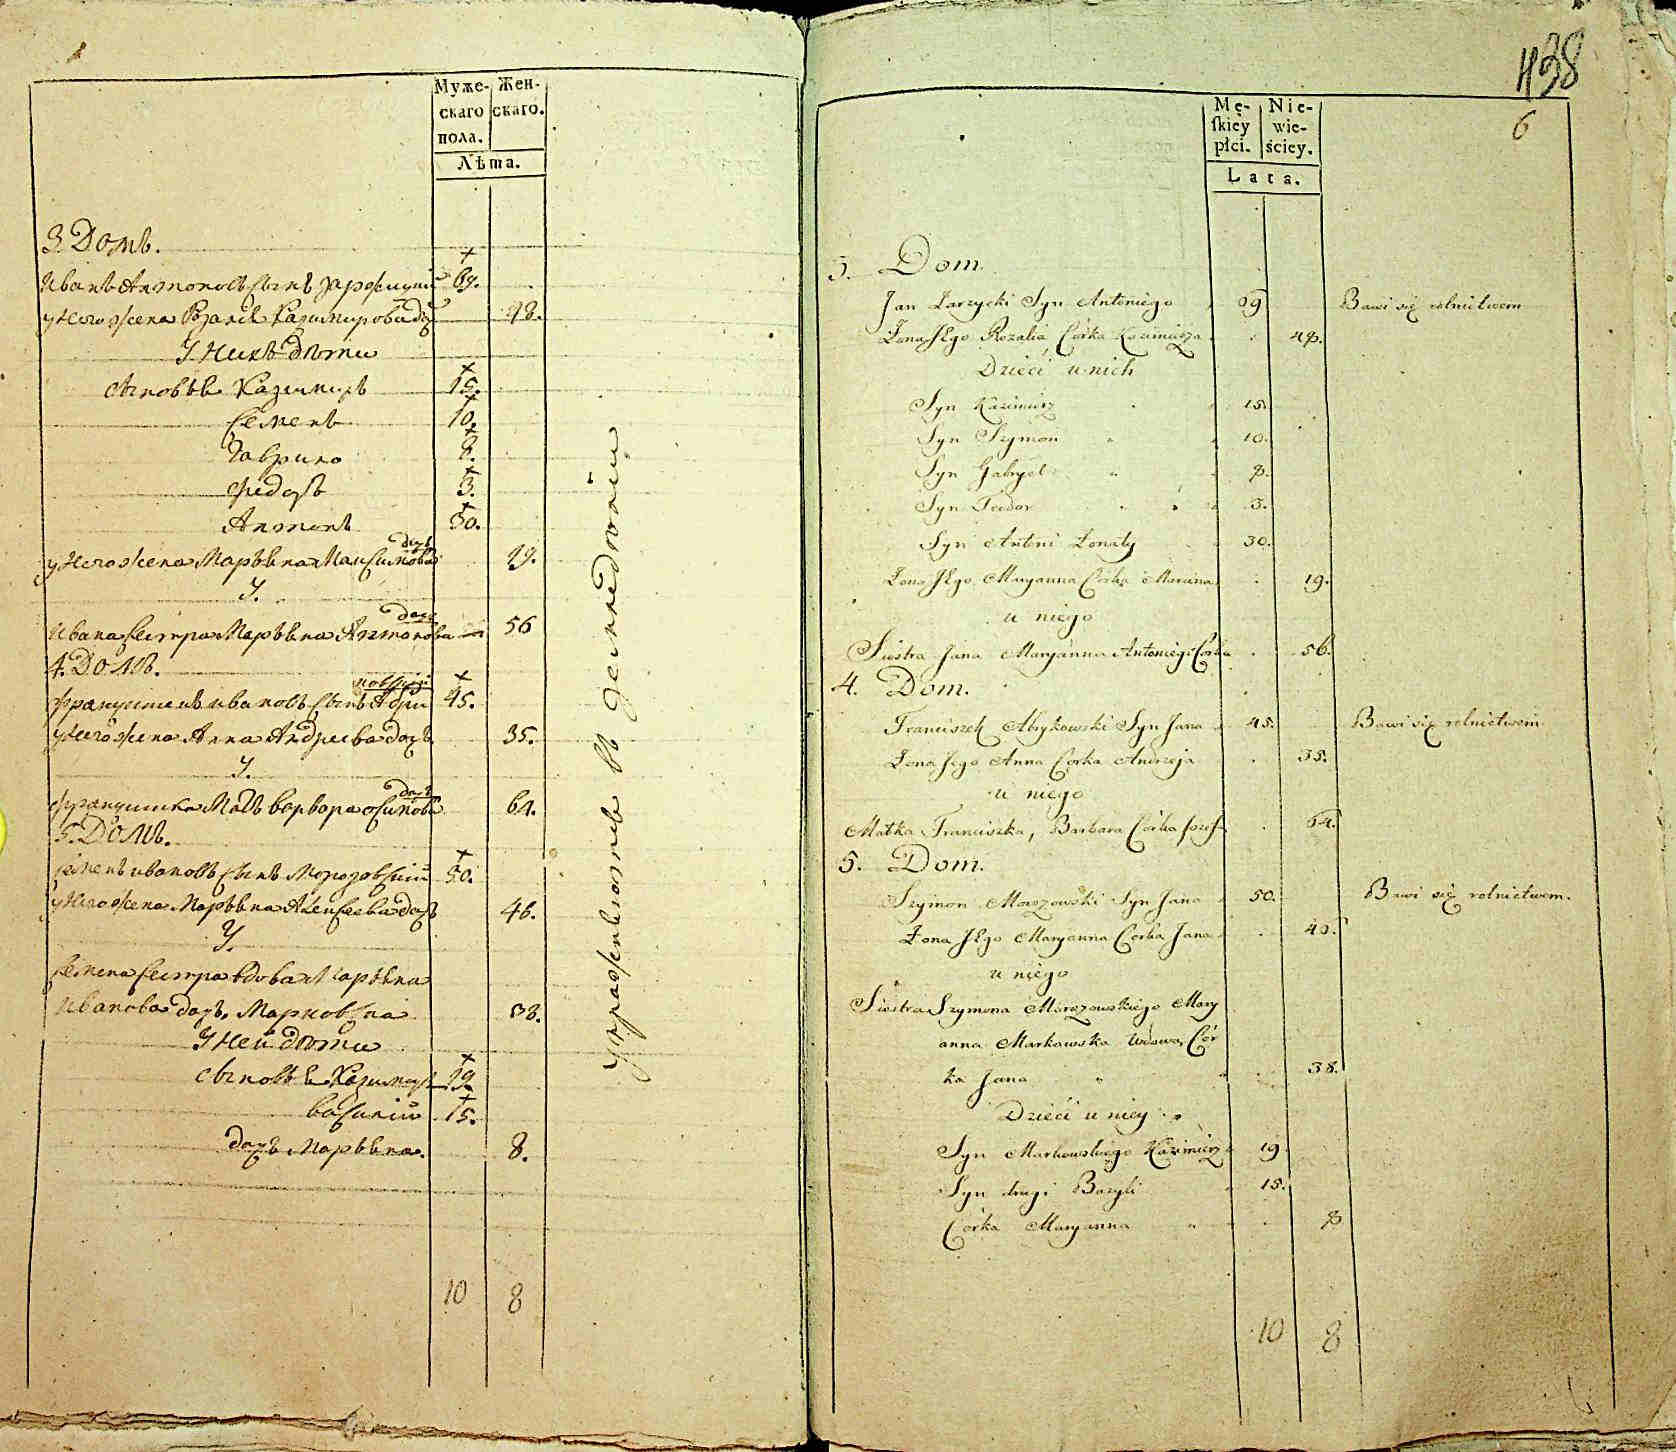 Муже-
скаго
пола.
Жен-
скаго.
Лѣта.
3. Домъ.
Иванъ Антоновъ сынъ Заржицкій 69.
у него жена Розалія Казимирова доч 48.
У нихъ дѣти
сыновья Казимиръ 15.
Семенъ 10.
Гаврило 8.
Федоръ 3.
Антонъ 30.
у него жена Марьяна 19.
У.
Ивана сестра Марьяна Антонова дочь 56
4. Домъ.
Францишекъ Ивановъ сынъ 45.
у него жена Анна Андреева дочь 35.
У.
Францишка мать Варвара Осипова дочь 64.
5. Домъ.
Семенъ Ивановъ сынъ Морозовскій 50.
у него жена Марьяна дочь 46.
У.
Семена сестра вдова Марьяна
Иванова дочь, Марковска 38.
У ней дѣти
сыновья Казимиръ 19.
Василій 15.
дочь Марьяна. 8.
10 8
упражняются в земледѣліи
438
6
Mę-
ſkiey
płci.
Nie-
wie-
ściey.
Lata.
3. Dom.
Jan Zarzycki Syn Antoniego 69 Bawi się rolnictwem
Żona Jego Rozalia Córka Kazimirza 48.
Dzieci u nich
Syn Kazimirz 15.
Syn Szymon 10.
Syn Gabryel 8.
Syn Teodor 3.
Syn Antoni Żonaty 30.
Żona Jego Maryanna Córka Marcina 19.
u niego
Siostra Jana Maryanna Antoniego Córka 56.
4. Dom.
Franciszek Abrykowski Syn Jana 45. Bawi się rolnictwem
Żona Jego Anna Córka Andrzeja 35.
u niego
Matka Franciszka, Barbara Córka Jozefa 64.
5. Dom.
Szymon Morozowski Syn Jana 50. Bawi się rolnictwem.
Żona Jego Maryanna Córka Jana 46.
u niego
Siostra Szymona Morozowskiego Mary
anna Markowska Wdowa, Cór
ka Jana 38.
Dzieci u niey
Syn Markowskiego Kazimirz 19
Syn drugi Bazyli 15.
Córka Maryanna 8
10 8